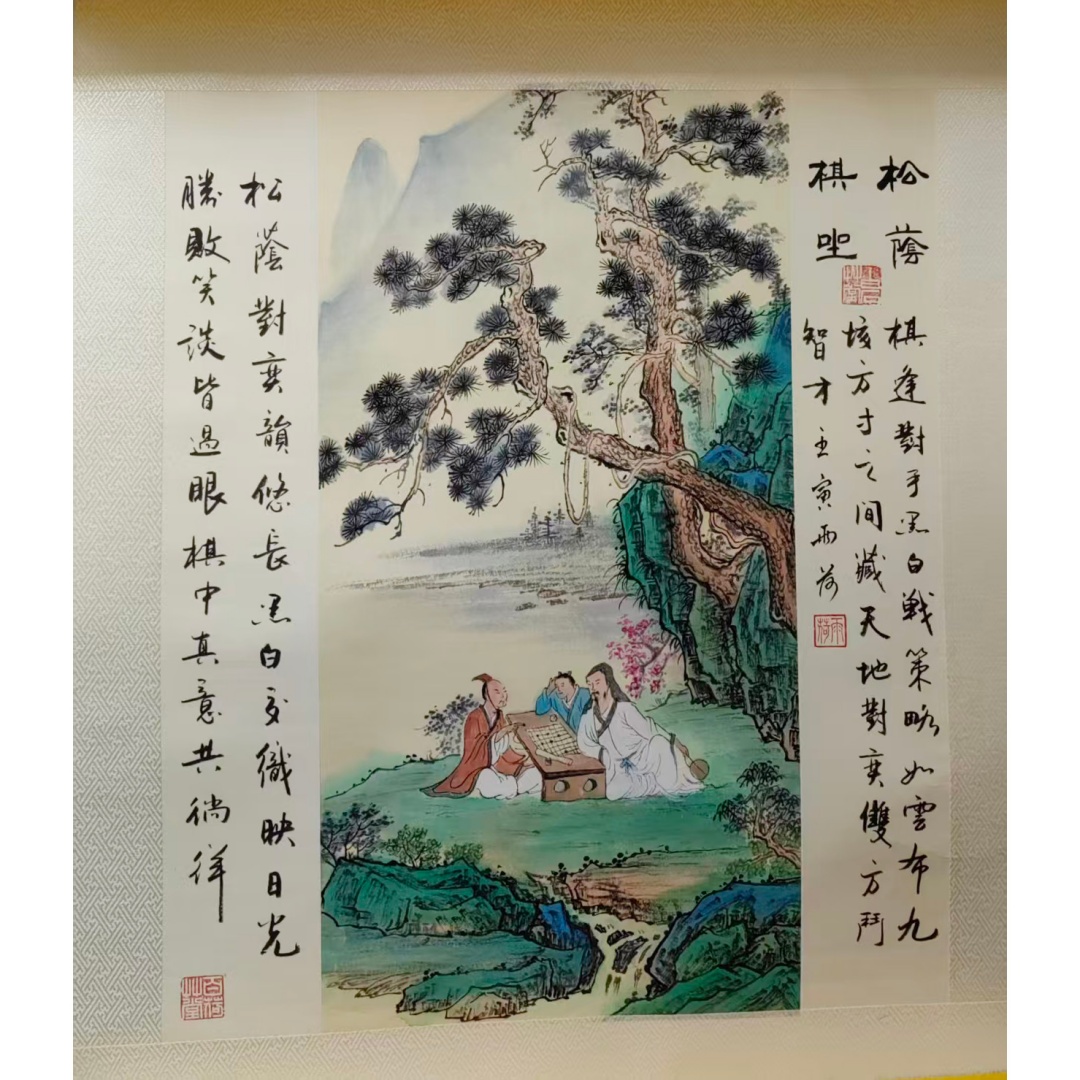 松蔭
棋
棋逢對手黑白戦策略如雲布九
垓方寸之间藏天地對弈雙方鬥
智才 壬寅雨荷
雨荷
松蔭對弈韻悠長黑白交織映日光
勝敗笑談皆過眼棋中真意共徜徉